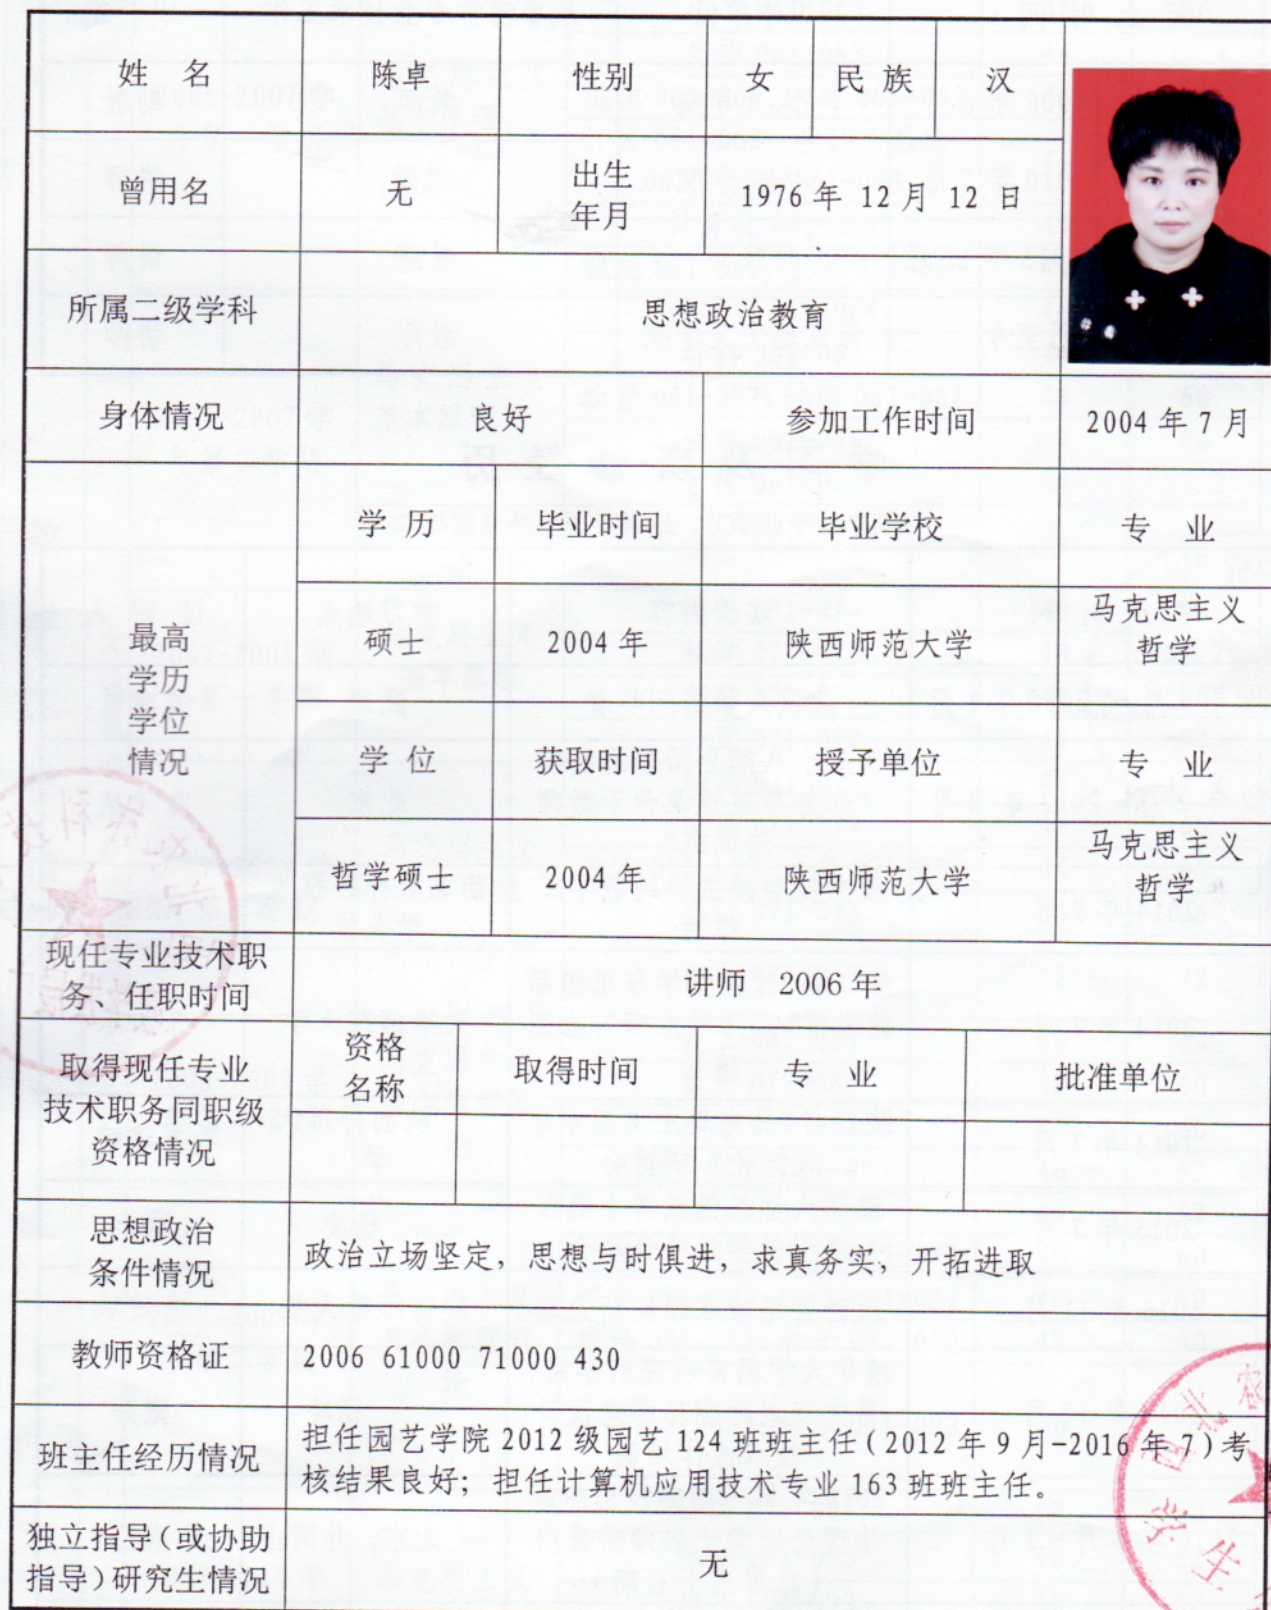 姓 名 陈卓 性别 女 民族 汉
曾用名 无 出生年月 1976年 12月 12 日
所属二级学科 思想政治教育
身体情况 良好 参加工作时间 2004年7月
最高
学历
学位
情况
学 历 毕业时间 毕业学校 专 业
硕士 2004年 陕西师范大学 马克思主义哲学
学 位 获取时间 授予单位 专 业
哲学硕士 2004年 陕西师范大学 马克思主义哲学
现任专业技术职
务、任职时间
讲师 2006年
取得现任专业
技术职务同职级
资格情况
资格名称 取得时间 专 业 批准单位
思想政治
条件情况
政治立场坚定，思想与时俱进，求真务实，开拓进取
教师资格证 2006 61000 71000 430
班主任经历情况
担任园艺学院2012级园艺124班班主任(2012年9月-2016年7)考
核结果良好；担任计算机应用技术专业163班班主任。
独立指导(或协助
指导)研究生情况
无